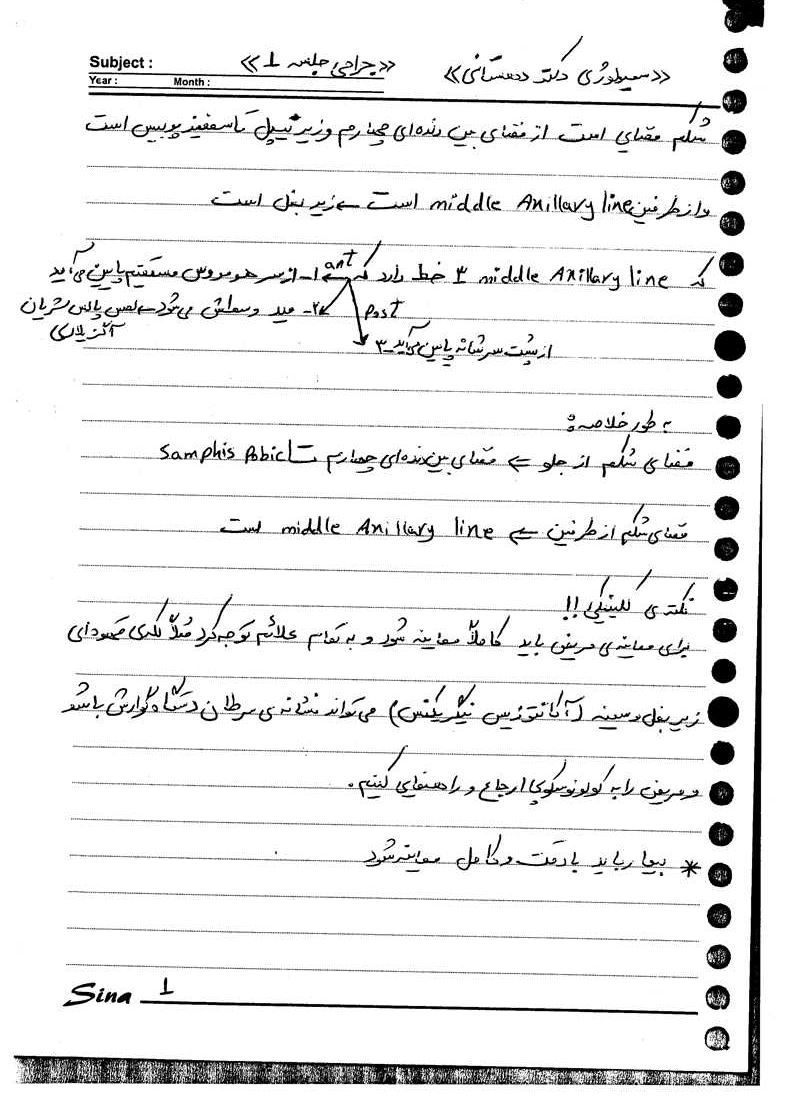 Subject :
Year :    Month :
«جراحی جلسه 1»
«سمیولوژی دکتر دهستانی»
شکم فضای است از فضای بین دنده‌ای چهارم و زیر نیپل تا سمفیز پوبیس است
و از طرفین middle Axillary line است ← زیر بغل است
که middle Axillary line 3 خط دارد که ant ← 1- از سر هومروس مستقیم پایین می‌آید
2- مید وسطش می‌شود ← لمس پالس شریان
آگزیلاری
Post
از پشت سر شانه پایین می‌آید -3
به طور خلاصه :
فضای شکم از جلو ← فضای بین دنده‌ای چهارم تا Samphis Pobic
فضای شکم از طرفین ← middle Axillary line است
نکته‌ی کلینیکی !!
برای معاینه‌ی مریض باید کاملاً معاینه شود و به تمام علائم توجه کرد مثلاً لکه‌ی قهوه‌ای
زیر بغل و سینه (آکانتوزیس نیگریکنس) می‌تواند نشانه‌ی سرطان دستگاه گوارش باشد
و مریض را به کولونوسکوپی ارجاع و راهنمایی کنیم.
* بیمار باید با دقت و کامل معاینه شود
Sina 1